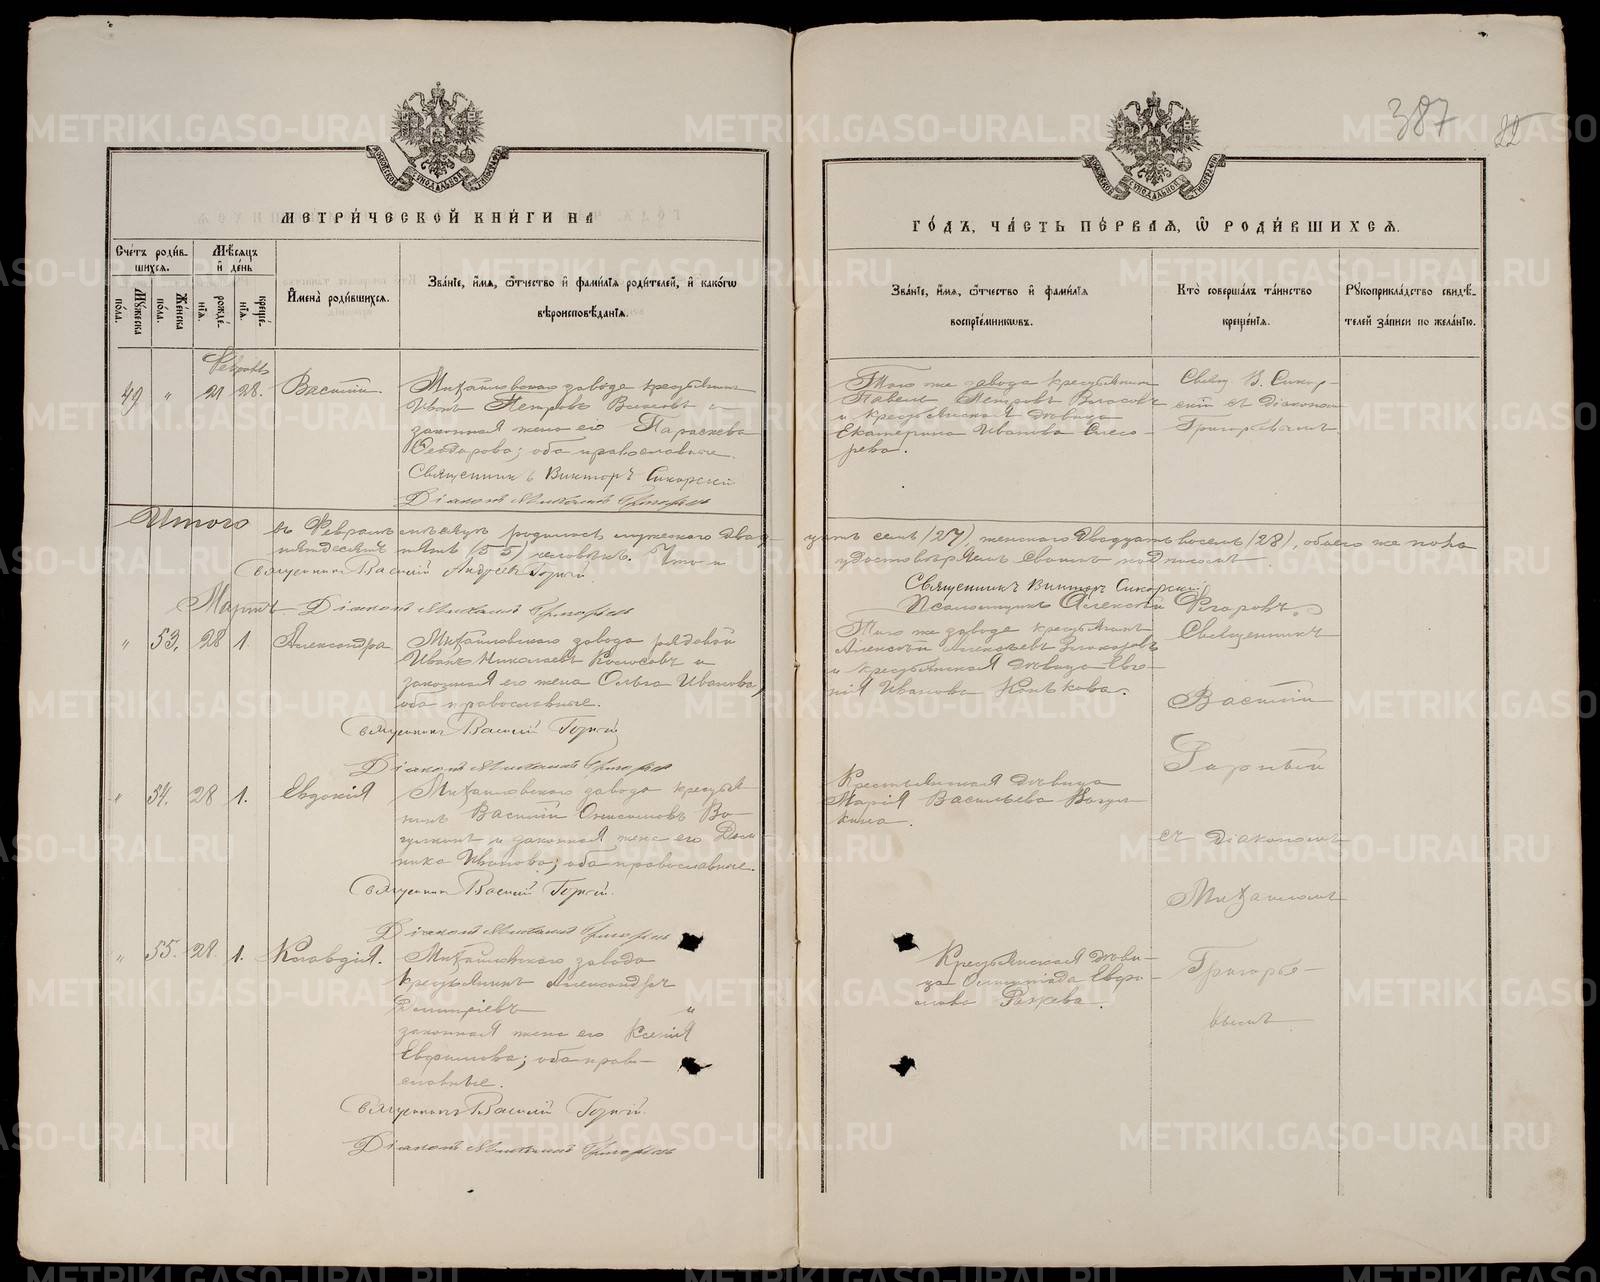 387
22
МЕТРИ́ЧЕСКОЙ КНИ́ГИ НА
ГО́ДЪ, ЧА́СТЬ ПЕ́РВАЯ, Ѡ РОДИ́ВШИХСЯ.
Сче́тъ роди́в-
шихся.
Мѣ́сяцъ
и де́нь
Мꙋжеска
пола.
Же́нска
пола.
рожде́-
нія.
креще́-
нія.
Имена̀ роди́вшихся.
Зва́ніе, и́мя, ѻ҆́тчество и фами́лія роди́телей, и како́гѡ
вѣроисповѣ́данія.
Зва́ніе, и́мя, ѻ҆́тчество и фами́лія
воспріе́мникѡвъ.
Кто̀ соверша́лъ та́инство
креще́нія.
Рꙋкоприкла́дство свидѣ́-
телей за́писи по жела́нію.
Февраль
49 " 21 28. Василій.
Михайловскаго завода крестьянинъ
Иванъ Петровъ Власовъ и
законная жена его Параскева
Ѳеодорова; оба православные.
Священникъ Викторъ Сикорскій
Діаконъ Михаилъ Григорьевъ
Того же завода крестьянинъ
Павелъ Петровъ Власовъ
и крестьянская дѣвица
Екатерина Иванова Слесо-
рева.
Свящ. В. Сикор-
скій съ діакономъ
Григорьевымъ
Итого въ Февралѣ мѣсяцѣ родилось мужескаго двад-
цать семь (27), женскаго двадцать восемь (28), обоего же пола
пятьдесятъ пять (55) человѣкъ. Что и
удостовѣряемъ своимъ подписомъ
Священникъ Василій Андреевъ Горный
Діаконъ Михаилъ Григорьевъ
Священникъ Викторъ Сикорскій
Псаломщикъ Алексій
Мартъ
" 53. 28 1. Александра
Михайловскаго завода рядовой
Иванъ Николаевъ Колосовъ и
законная его жена Ольга Иванова,
оба православные.
Священникъ Василій Горный
Діаконъ Михаилъ Григорьевъ
Того же завода крестьянинъ
Алексѣй Алексѣевъ Захаровъ
и крестьянская дѣвица Евге-
нія Иванова Конькова.
Священникъ
Василій
Горный
съ діакономъ
Михаиломъ
Григорье-
вымъ
" 54. 28 1. Евдокія
Михайловскаго завода крестья-
нинъ Василій Онисимовъ Во-
гулкинъ и законная жена его Дом-
ника Иванова; оба православные.
Священникъ Василій Горный.
Діаконъ Михаилъ Григорьевъ
Крестьянская дѣвица
Марія Васильева Вогул-
кина.
" 55. 28. 1. Клавдія.
Михайловскаго завода
крестьянинъ Александръ
Димитріевъ и
законная жена его Ксенія
Евфимова; оба право-
славные.
Священникъ Василій Горный.
Діаконъ Михаилъ Григорьевъ
Крестьянская дѣви-
ца Олимпіада Евфи-
мова
METRIKI.GASO-URAL.RU